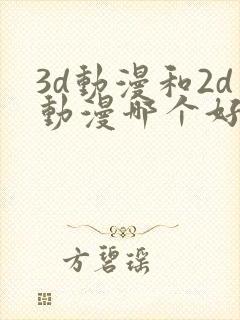 3d動漫和2d
動漫哪个好
方碧瑶